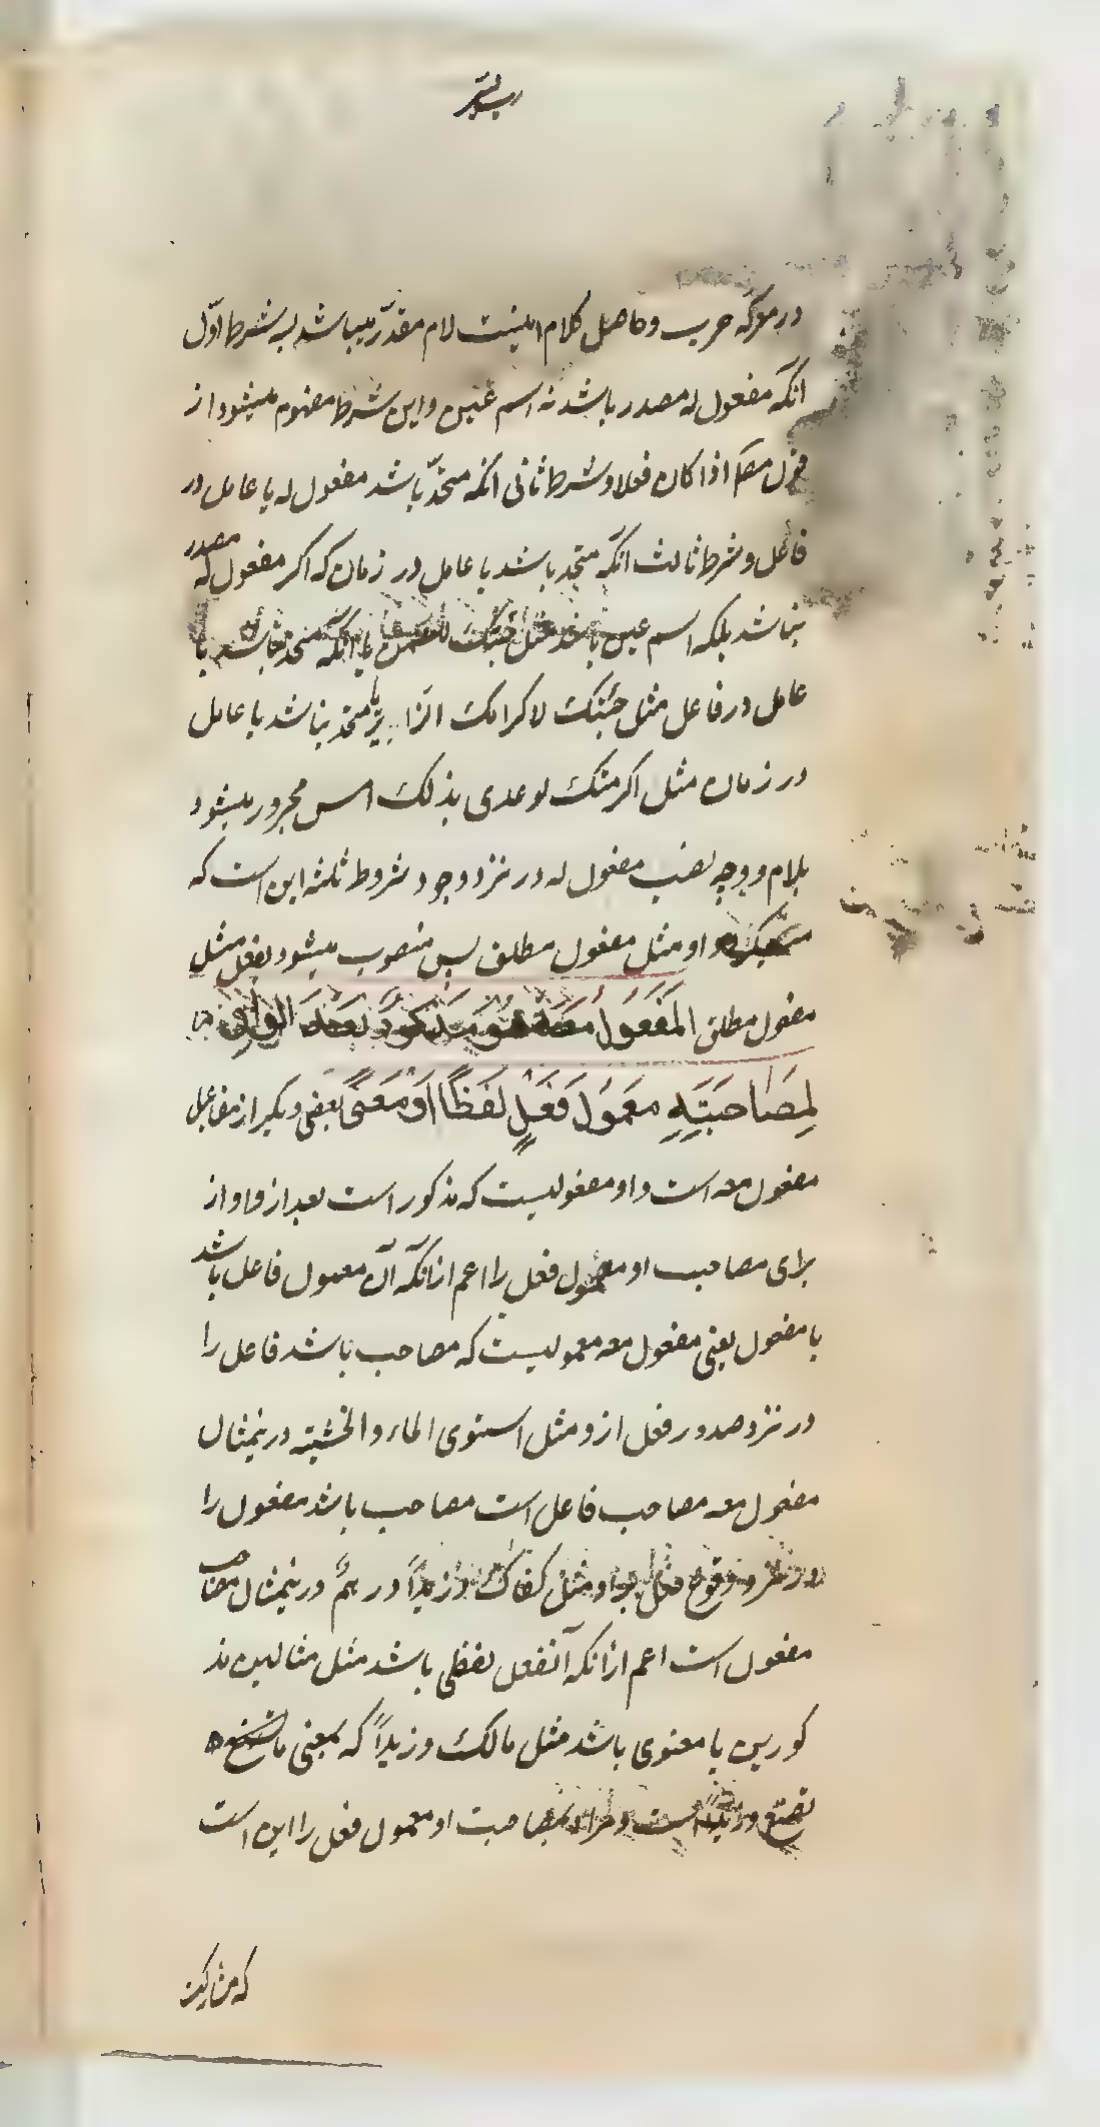 در معرکه حرب و حاصل کلام اینست لام مقدّر میباشد بسه شرط اوّل
انکه مفعول له مصدر باشد نه اسم عین و این شرط مفهوم میشود از
قول مصم اذا کان فعلا و شرط ثانی انکه متحدّ باشد مفعول له با عامل در
فاعل و شرط ثالث انکه متحد باشد با عامل در زمان که اکر مفعول له مصدر
نباشد بلکه اسم عین باشد مثل جئتک للسمن یا انکه متحد نباشد با
عامل در فاعل مثل جئتک لاکرامک الزا یر یا متحد نباشد با عامل
در زمان مثل اکرمتک لوعدی بذلک امس مجرور میشود
بلام و وجه نصب مفعول له در نزد وجود شروط ثلثه این است که
میکردد او مثل مفعول مطلق پس منصوب میشود بفعل مثل
مفعول مطلق المَفعُولُ مَعَهُ هُوَ مَذکُورٌ بَعدَ الواوِ
لِمُصَاحَبَتِهِ مَعمُولَ فِعلٍ لَفظًا اَو مَعنًی یعنی دیکر از مفاعیل
مفعول معه است و او مفعولیست که مذکور است بعد از واو از
برای مصاحبت او معمول فعل را اعم ازانکه آن معمول فاعل باشد
یا مفعول یعنی مفعول معه معمولیست که مصاحب باشد فاعل را
در نزد صدور فعل ازو مثل استوی الماء و الخشبة درینمثال
مفعول معه مصاحب فاعل است مصاحب باشد مفعول را
در نزد وقوع فعل بر او مثل کفاک و زیداً درهمٌ درینمثال مصاحب
مفعول است اعم ازانکه آنفعل لفظی باشد مثل مثالین مذ
کورین یا معنوی باشد مثل مالک و زیداً که بمعنی ما
تصنع و زیداً است و مراد بمصاحبت او معمول فعل را این است
که مشارکت